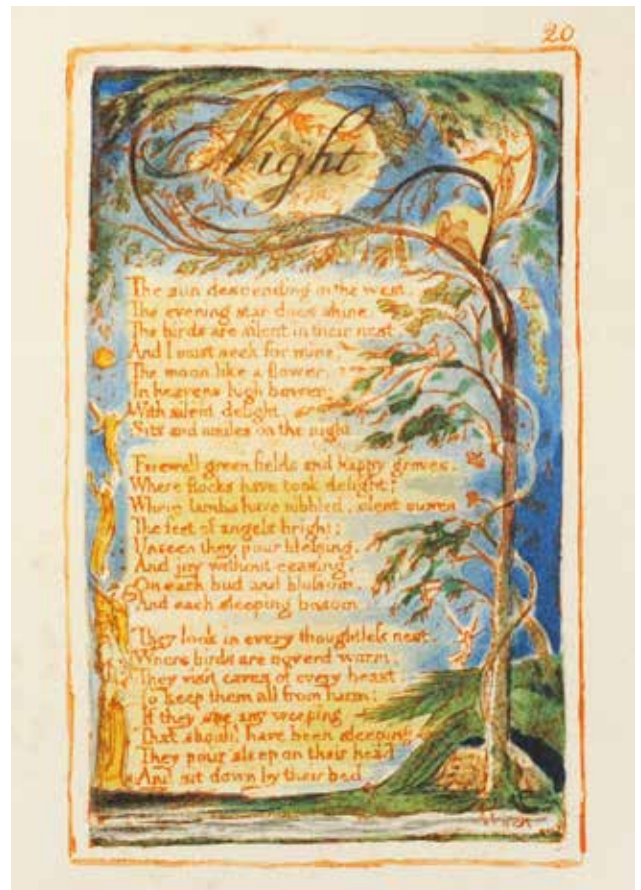 20
Night
The sun descending in the west.
The evening star does shine.
The birds are silent in their nest
And I must seek for mine,
The moon like a flower,
In heavens high bower;
With silent delight,
Sits and smiles on the night
Farewell green fields and happy groves,
Where flocks have took delight;
Where lambs have nibbled, silent moves
The feet of angels bright;
Unseen they pour blessing,
And joy without ceasing,
On each bud and blossom,
And each sleeping bosom
They look in every thoughtless nest
Where birds are coverd warm;
They visit caves of every beast
To keep them all from harm:
If they see any weeping
That should have been sleeping
They pour sleep on their head
And sit down by their bed